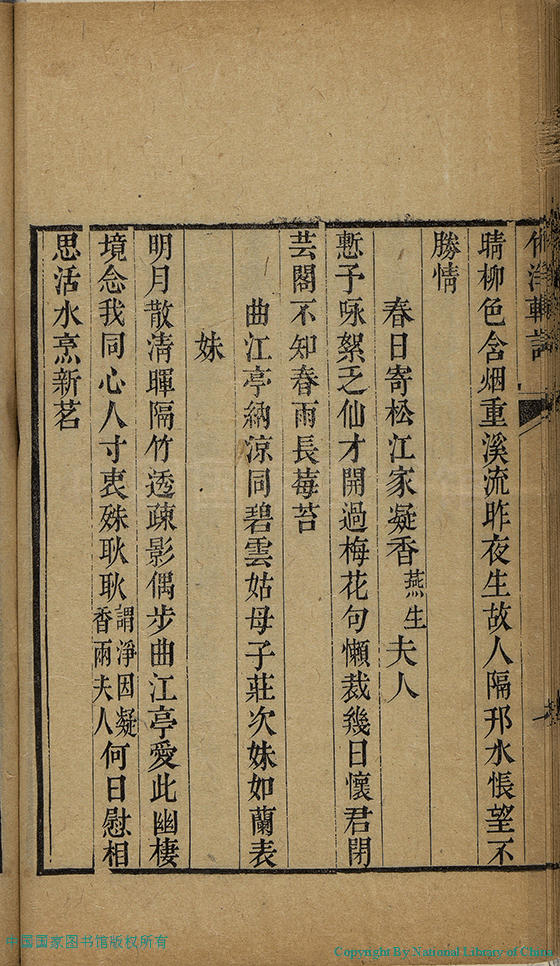 晴柳色含烟重溪流昨夜生故人隔邗水悵望不
勝情
春日寄松江家凝香燕生夫人
慙予咏絮乏仙才開過梅花句懶裁幾日懷君閉
芸閣不知春雨長莓苔
曲江亭納涼同碧雲姑母子莊次妹如蘭表
妹
明月散清暉隔竹透疎影偶步曲江亭愛此幽棲
境念我同心人寸衷殊耿耿謂淨因凝香兩夫人何日慰相
思活水烹新茗
中国国家图书馆版权所有
Copyright By National Library of China